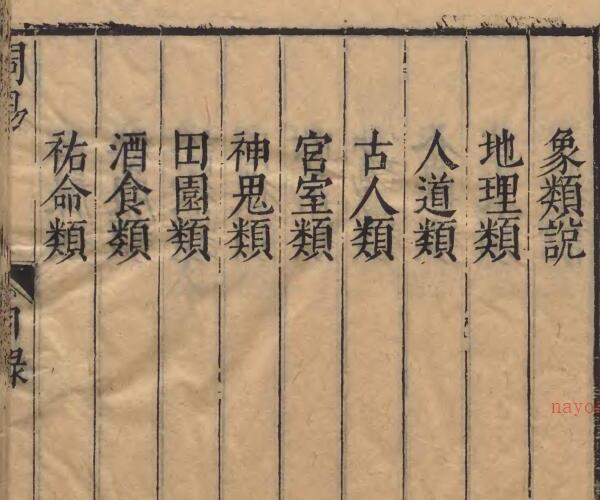 象類說
地理類
人道類
古人類
宮室類
神鬼類
田園類
酒食類
祐命類
周易
目録
nayo